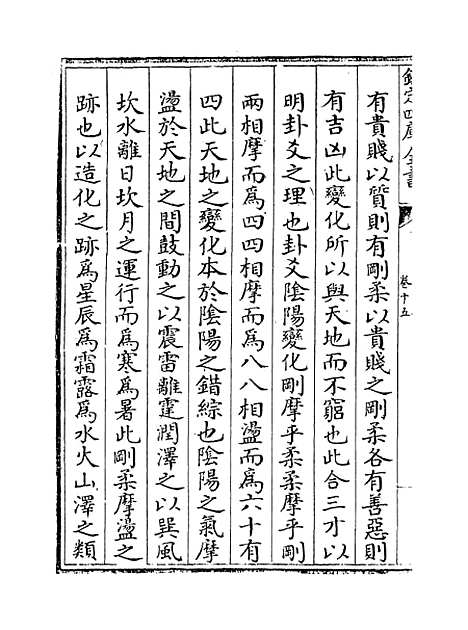 欽定四庫全書
卷十五
有貴賤以質則有剛柔以貴賤之剛柔各有善惡則
有吉凶此變化所以與天地而不窮也此合三才以
明卦爻之理也卦爻陰陽變化剛摩乎柔柔摩乎剛
兩相摩而為四四相摩而為八八相盪而為六十有
四此天地之變化本於陰陽之錯綜也陰陽之氣摩
盪於天地之間鼓動之以震雷離霆潤澤之以巽風
坎水離日坎月之運行而為寒為暑此剛柔摩盪之
跡也以造化之跡為星辰為霜露為水火山澤之類